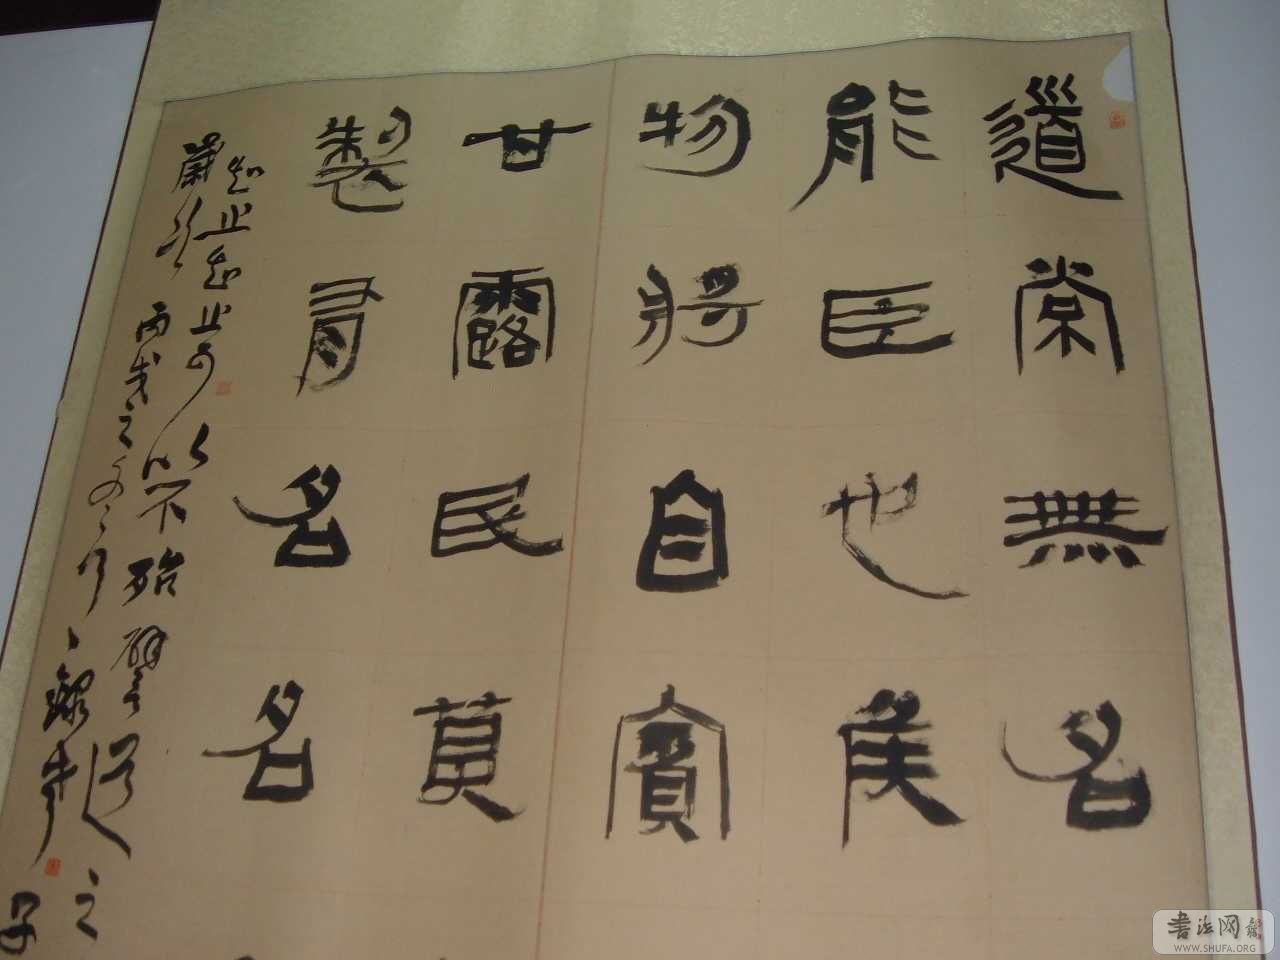 道常無名
能臣也侯
物將自賓
甘露民莫
製有名名
知止知止可以不殆譬道之
丙戌之
書法网
WWW.SHUFA.ORG